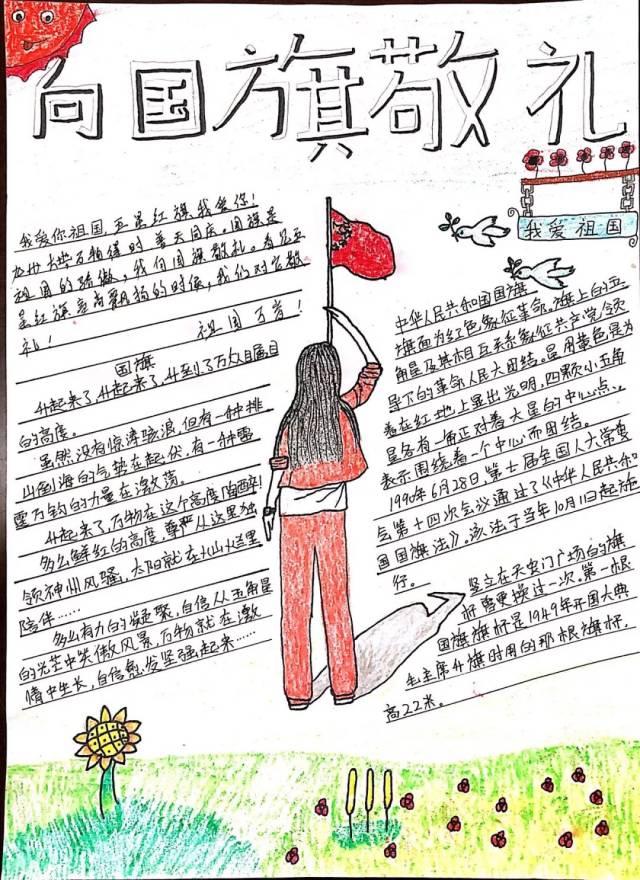 向国旗敬礼
我爱祖国
我爱你祖国,五星红旗我爱你!
九州大地万物佳时普天同庆,国旗是
祖国的骄傲,我向国旗敬礼。看见五
星红旗高高飘扬的时候,我们对它敬
礼! 祖国万岁!
国旗
升起来了升起来了,升到了万众瞩目
的高度。
虽然没有惊涛骇浪,但有一种排
山倒海的气势在起伏,有一种雷
霆万钧的力量在激荡。
升起来了,万物在这个高度陶醉!
多么鲜红的高度,尊严从这里如
领神州风骚,太阳就在火山这里
陪伴……
多么有力的凝聚,自信从五角星
的光芒中笑傲风景万物就在激
情中生长,自信愈发坚强起来……
中华人民共和国国旗
旗面为红色象征革命。旗上的五
角星及其相互关系象征共产党领
导下的革命人民大团结。星用黄色是为
着在红地上显出光明,四颗小五角
星各有一角正对着大星的中心点,
表示围绕着一个中心而团结。
1990年6月28日,第七届全国人大常委
会第十四次会议通过了《中华人民共和
国国旗法》。该法于当年10月1日起施
行。
竖立在天安门广场的旗
杯曾更换过一次。第一根
国旗旗杯是1949年开国大典
毛主席升旗时用的那根旗杯,
高22米。